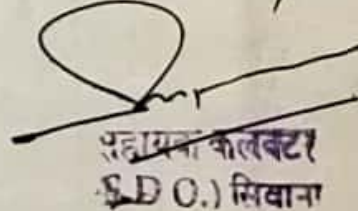 सहायक कलक्टर
S.D O.) सिवाना